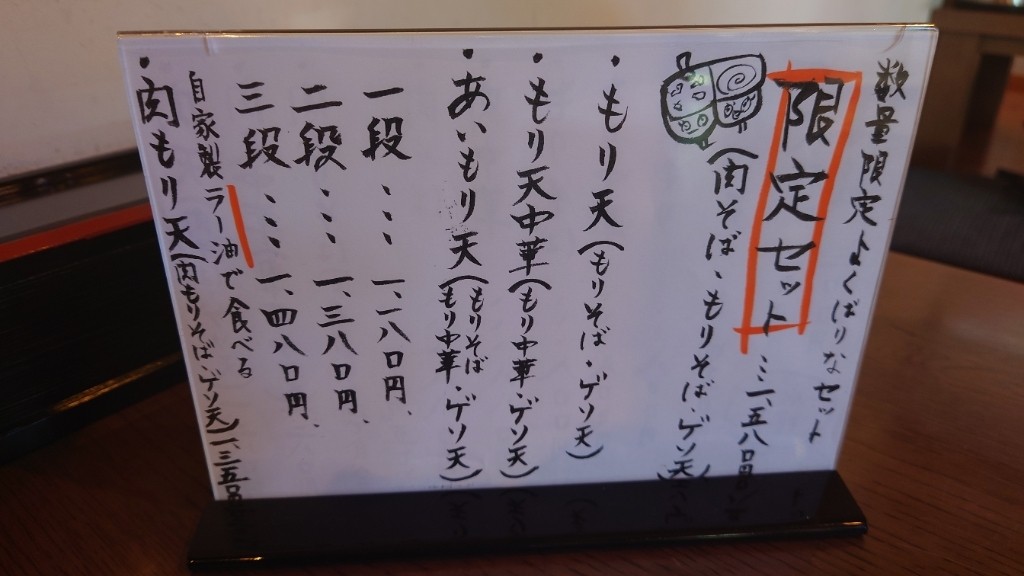 数量限定よくばりなセット
限定セット…一、五八〇円
(肉そば、もりそば、ゲソ天)
・もり天(もりそば・ゲソ天)
・もり天中華(もり中華・ゲソ天)
・あいもり天(もりそば・もり中華・ゲソ天)
一段……一、一八〇円、
二段……一、三八〇円、
三段……一、四八〇円、
自家製ラー油で食べる
・肉もり天(肉もりそば・ゲソ天)一、三五〇